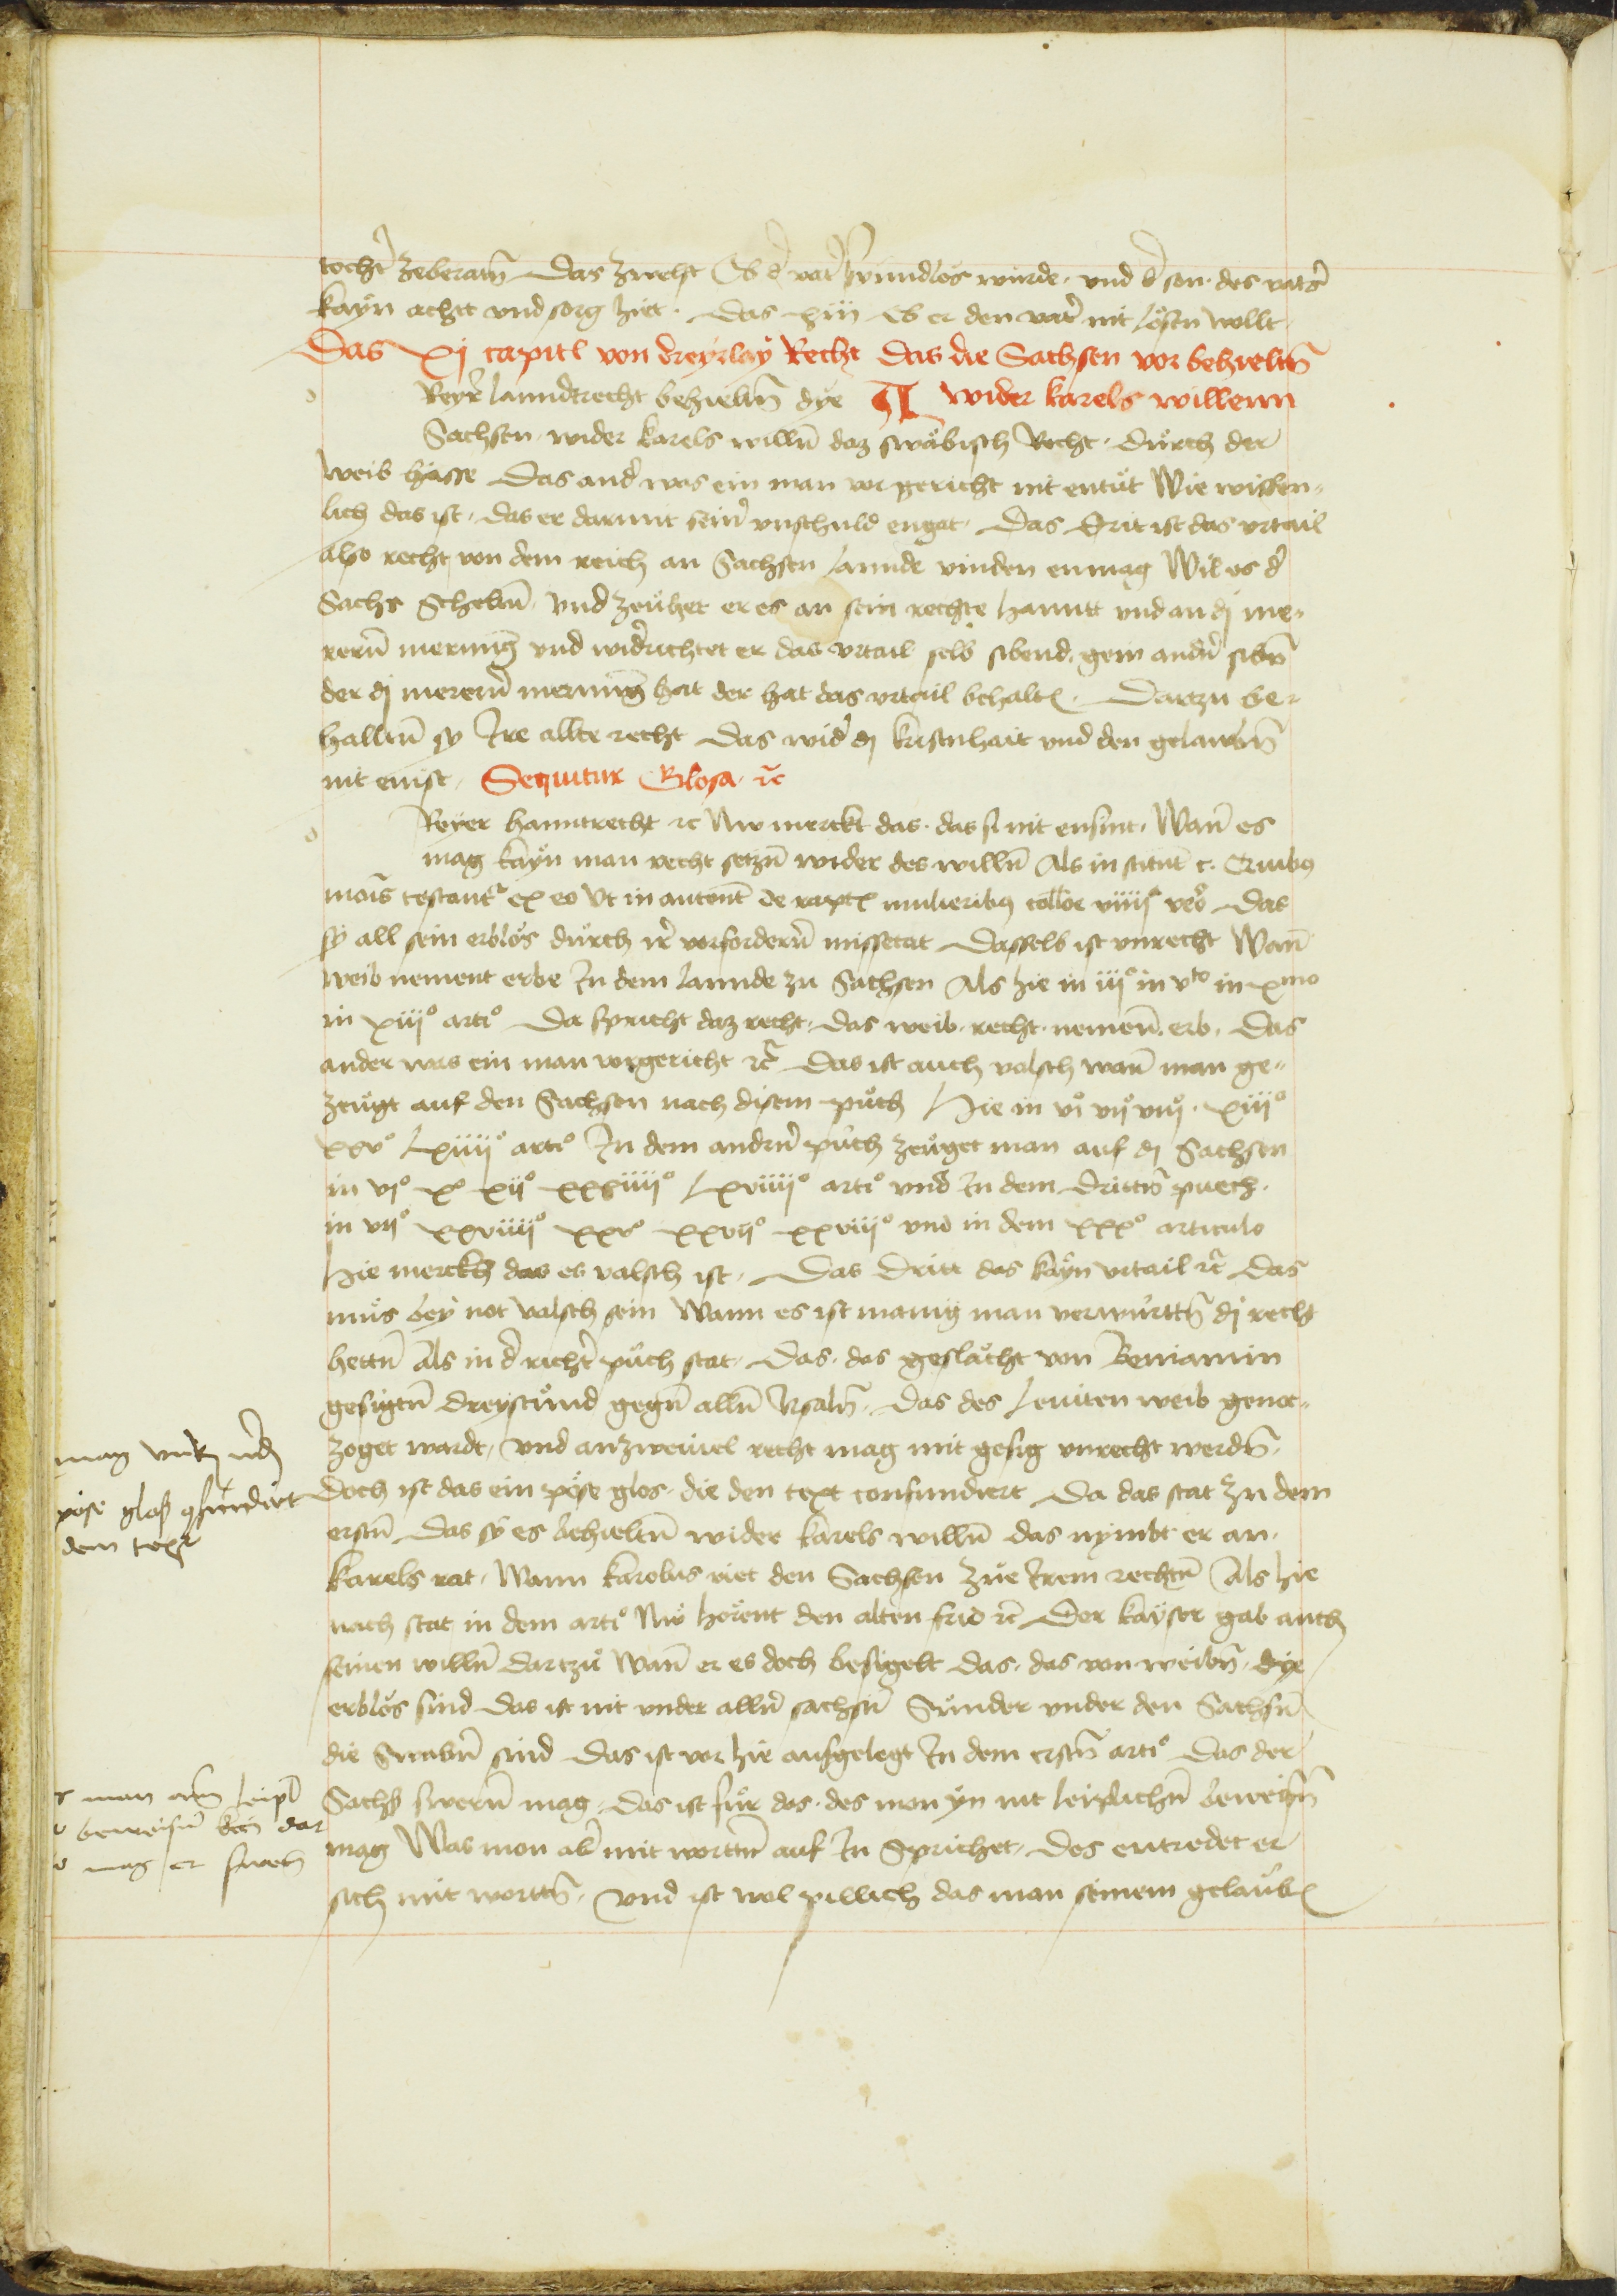 tocht͛ zeberatn̄ Das zwelft Ob d͛ vat͛ synndlos würde · vnd d͛ son · des vaters
kayn achtt vnd sorg hiet · Das xiii Ob er den vat͛ nit lösen wollt ·
Das xj capitl von dreyrlay Recht das die Sachsen vor behieltn̄
Reyr͛ lanndtrecht behieltn̄ dye ¶ wider karels willenn
Sachsen · wider karels willn̄ daz swäbisch Recht · Durch der
weib hasse Das and͛ was ein man vor gericht nit entüt Wie wissen-
lich das ist · das er darmit sein͛ vnschuld engat · Das Drit ist das vrtail
also recht von dem reich an Sachsen lannde vinden enmag Wil es d͛
Sachs Scheltn̄ · Vnd zeuhet er es an sein rechte hanntt vnd an dj me-
rern̄ menning vnd wid͛richtet er das vrtail selb sibend · gein andn̄ sibn̄
der dj merern̄ menning hat der hat das vrtail behalten · Dartzu be-
halltn̄ sy Ire allte recht Das wid͛ dj kristnhait vnd den gelawbn̄
nit enist · Sequitur Glosa · ꝛc̄
Reyer hanntrecht ꝛc Nw merckt das · das si nit ensint · Wan̄ es
mag kayn man recht setzn̄ wider des willn̄ Als in stitut̄ c. Quibus
mois testant͛ ex eo Vt in autent̄ de raptis mulieribus colloe viiijᵃ vero Das
sy all sein erblos durch ir͛ vorfordern̄ missetat Dasselb ist vnrecht Wan̄
weib nement erbe In dem lannde zu Sachsen Als hie in iijº in vto in xmo
in xiijº artiº Da spricht daz recht · das weib · recht · nemen̄ · erb · Das
ander was ein man vorgericht ꝛc̄ Das ist auch valsch wan̄ man ge-
zeugt auf den Sachsen nach disem puch Hie in viº vijº viijº · xiijº
xxvº lxiiijº artiº In dem andn̄ puch zeuget man auf dj Sachsen
in vjº xº xijº xxxiiijº lxviiijº artiº vnd In dem Drittn̄ puech ·
in vijº xxviiijº xxvº xxvijº xxviijº vnd in dem xxxº articulo
Hie merckh das es valsch ist · Das Dritt das kayn vrtail ꝛc̄ Das
mus bey not valsch sein Wann es ist manig man verwurttn̄ dj recht
hettn̄ Als in d͛ richt͛ puch stat · Das · das geslächt von Beniamin
gesigtn̄ Dreystund gegn̄ alln̄ Israhn̄ · Das des leuiten weib genot-
zoget wardt · Vnd anzweiuel recht mag mit gesig vnrecht werdn̄ ·
Doch ist das ein pöse glos · die den text confundiert Da das stat zu dem
erstn̄ Das sy es behieltn̄ wider karels willn̄ das nymbt er an ·
karels rat · Wann karolus riet den Sachsen zue Irem rechtn̄ Als hie
nach stat in dem artiº Nw horent den alten frid ꝛc̄ Der kayser gab auch
seinen willn̄ Dartzu Wan̄ er es doch besigelt Das · das von weibn̄ · dye
erblos sind Das ist nit vnder alln̄ sachsn̄ Sunder vnder den Sachsn̄
die Swabn̄ sind Das ist vor hie aufgelegt In dem erstn̄ artiº Das der
Sachs swern̄ mag · Das ist für das · des man yn nit leiplichn̄ beweisn̄
mag Was man ab͛ mit wortn̄ auf In Sprichet · Des entredet er
sich mit wortn̄ · Vnd ist wol pillich das man seinem gelaubn̄
mag
pöse glos ꝯfundirt
dem text
man leipl
beweisn̄ kan dar
mag er swern